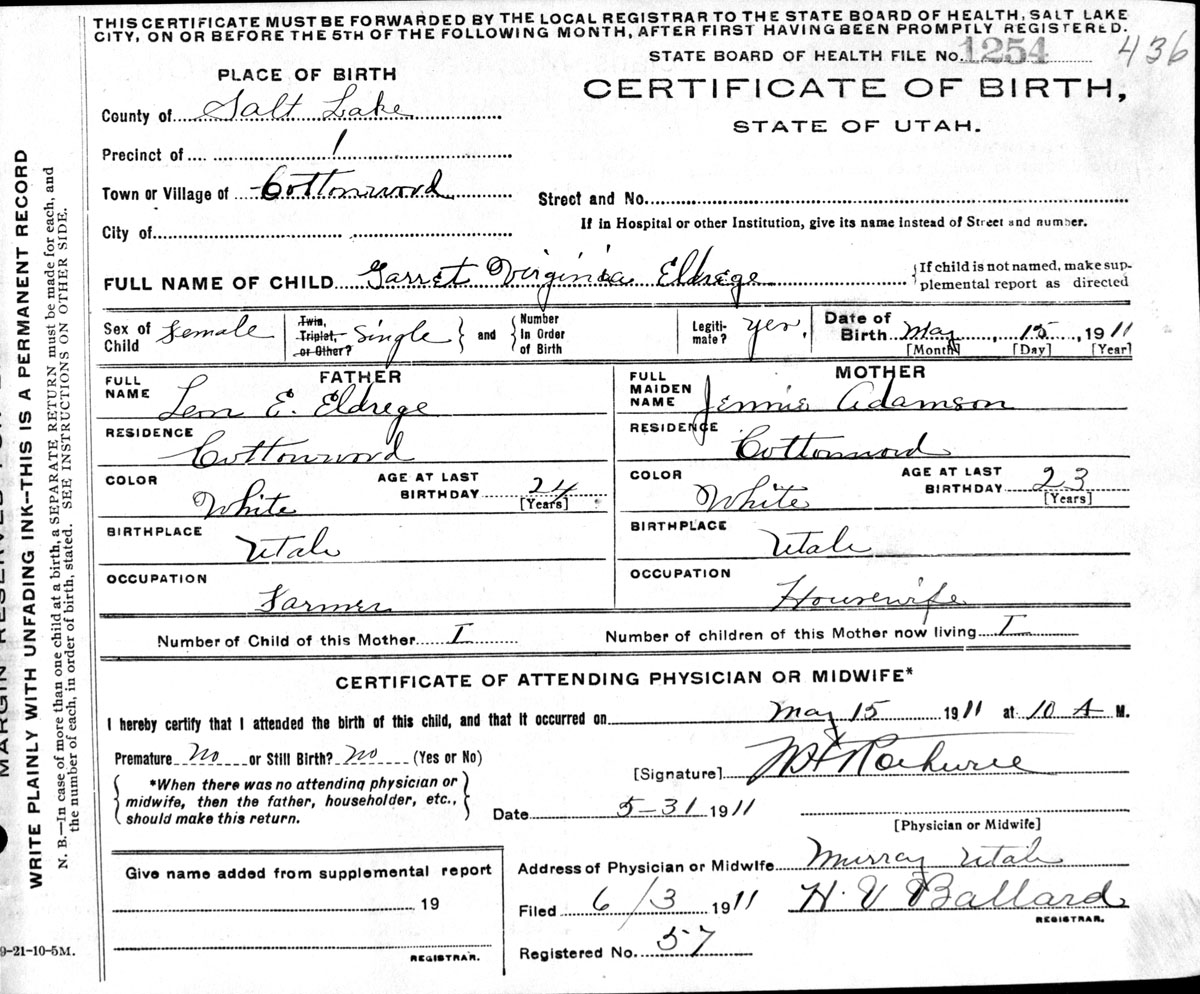 THIS CERTIFICATE MUST BE FORWARDED BY THE LOCAL REGISTRAR TO THE STATE BOARD OF HEALTH, SALT LAKE
CITY, ON OR BEFORE THE 5TH OF THE FOLLOWING MONTH, AFTER FIRST HAVING BEEN PROMPTLY REGISTERED.
STATE BOARD OF HEALTH FILE No. 1254 436
PLACE OF BIRTH
CERTIFICATE OF BIRTH,
STATE OF UTAH.
County of Salt Lake
Precinct of 1
Town or Village of Cottonwood
Street and No.
City of
If in Hospital or other Institution, give its name instead of Street and number.
FULL NAME OF CHILD Garret Virginia Eldrege
{If child is not named, make sup-
plemental report as directed
Sex of Child Female
Twin, Triplet, or Other? Single } and { Number In Order of Birth
Legiti-mate? yes.
Date of Birth May 15, 1911
[Month] [Day] [Year]
FATHER
FULL NAME Leon E. Eldrege
RESIDENCE Cottonwood
COLOR White AGE AT LAST BIRTHDAY 24 [Years]
BIRTHPLACE Utah
OCCUPATION Farmer
MOTHER
FULL MAIDEN NAME Jennie Adamson
RESIDENCE Cottonwood
COLOR White AGE AT LAST BIRTHDAY 23 [Years]
BIRTHPLACE Utah
OCCUPATION Housewife
Number of Child of this Mother I Number of children of this Mother now living I
CERTIFICATE OF ATTENDING PHYSICIAN OR MIDWIFE*
I hereby certify that I attended the birth of this child, and that it occurred on May 15 1911 at 10 A M.
Premature No or Still Birth? No (Yes or No)
*When there was no attending physician or
midwife, then the father, householder, etc.,
should make this return.
[Signature]
Date 5-31 1911
[Physician or Midwife]
Address of Physician or Midwife Murray Utah
Filed 6/3 1911 H. V Ballard
REGISTRAR.
Registered No. 57
Give name added from supplemental report
19
REGISTRAR.
9-21-10-5M.
WRITE PLAINLY WITH UNFADING INK--THIS IS A PERMANENT RECORD
N. B.—In case of more than one child at a birth, a SEPARATE RETURN must be made for each, and
the number of each, in order of birth, stated. SEE INSTRUCTIONS ON OTHER SIDE.